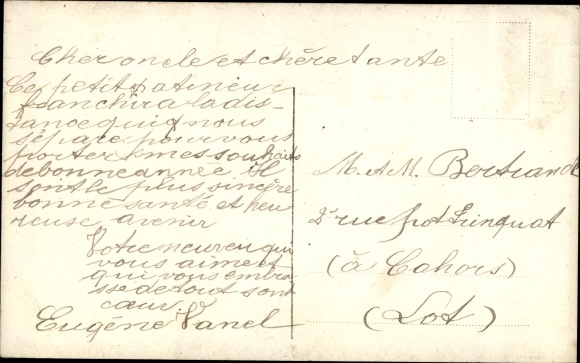 Cher oncle et chère tante
Ce petit patineur
franchira la dis-
tance qui nous
sépare pour vous
porter mes souhaits
de bonne année. il
sont le plus sincère
bonne santé et heu
reuse avenir
Votre neuveu qui
vous aime et
qui vous embra
sse de tout sont
cœur
Eugéne Vanel
M. et M. Bertrand
2 rue
(à Cahors)
(Lot)